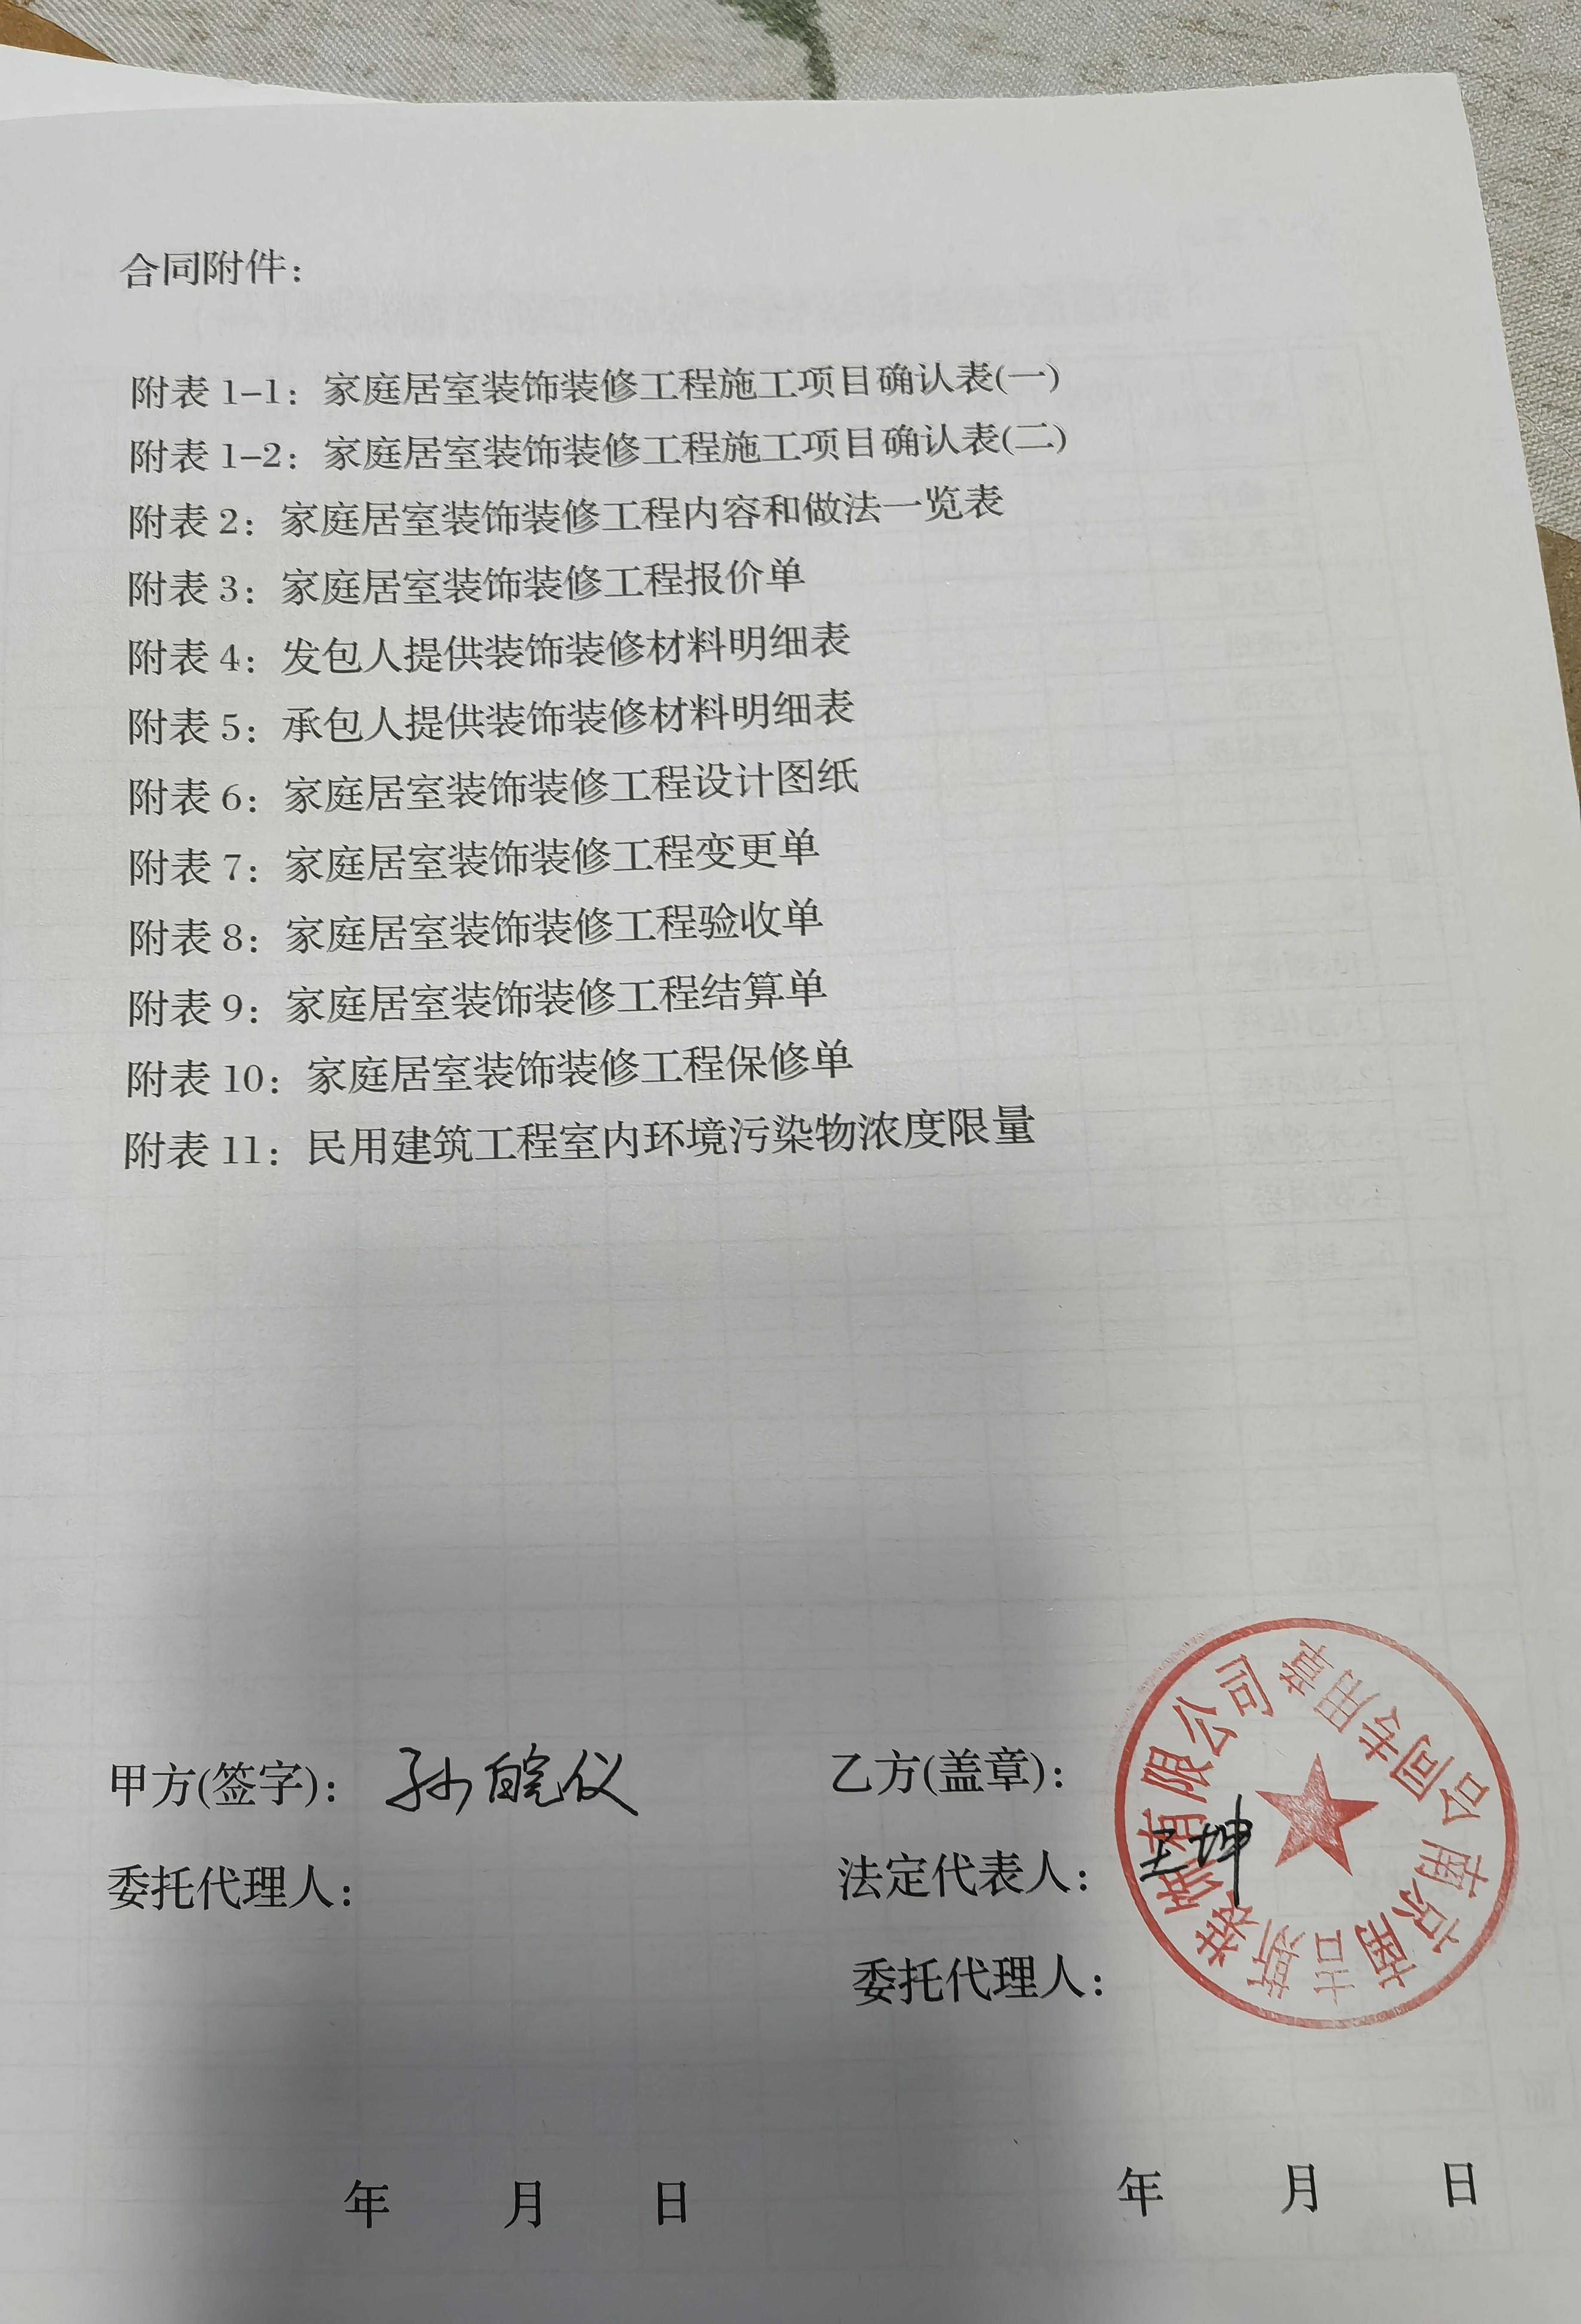 合同附件：
附表 1-1：家庭居室装饰装修工程施工项目确认表(一)
附表 1-2：家庭居室装饰装修工程施工项目确认表(二)
附表 2：家庭居室装饰装修工程内容和做法一览表
附表 3：家庭居室装饰装修工程报价单
附表 4：发包人提供装饰装修材料明细表
附表 5：承包人提供装饰装修材料明细表
附表 6：家庭居室装饰装修工程设计图纸
附表 7：家庭居室装饰装修工程变更单
附表 8：家庭居室装饰装修工程验收单
附表 9：家庭居室装饰装修工程结算单
附表 10：家庭居室装饰装修工程保修单
附表 11：民用建筑工程室内环境污染物浓度限量
甲方(签字)：孙皖仪
乙方(盖章)：
委托代理人：
法定代表人：王坤
委托代理人：
南京南吉斯装饰有限公司
合同专用章
年 月 日
年 月 日